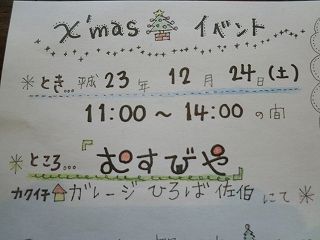 X'mas イベント
＊とき…平成23年 12月 24日(土)
11:00～14:00の間
＊ところ…『むすびや』
カクイチガレージひろば佐伯にて＊